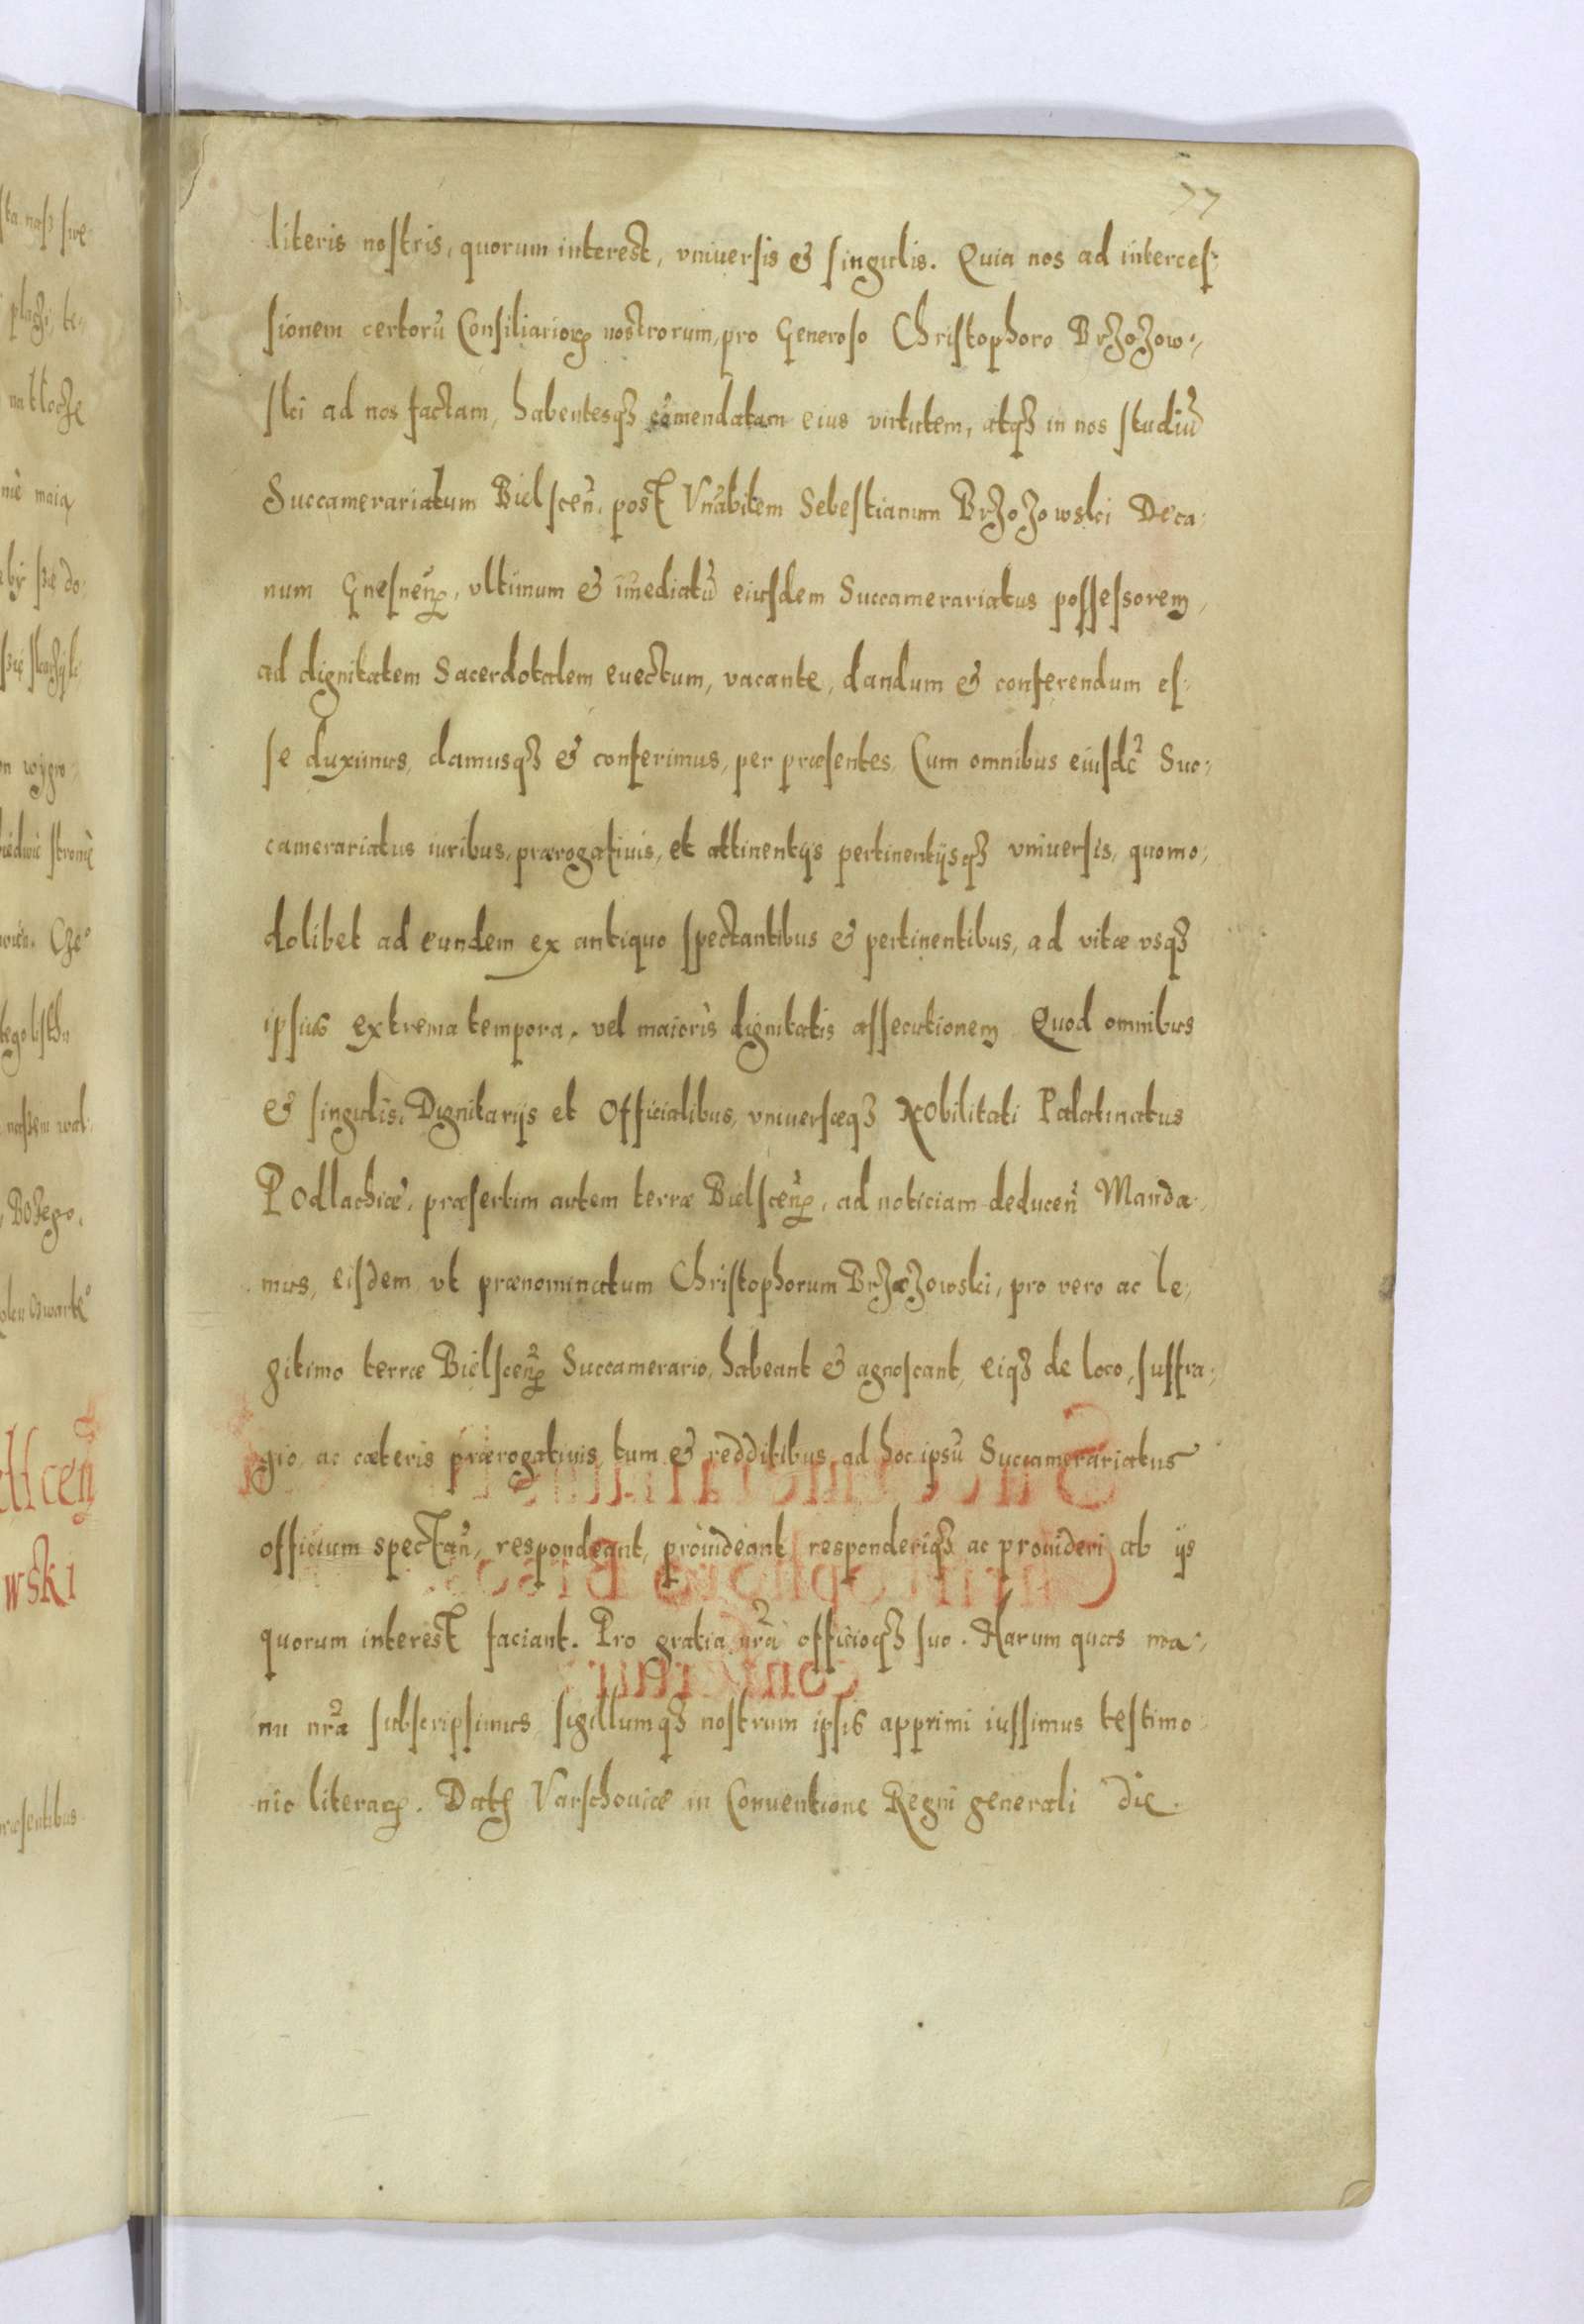 77
literis nostris, quorum interest, vniuersis & singulis. Quia nos ad interces,
sionem certorū Consiliarioꝝ nostrorum, pro Generoso Christophoro Brzozow,
ski ad nos factam, habentesqꝫ cōmendatam eius virtutem, atqꝫ in nos studiū
Succamerariatum Bielscen̄, post Vnābilem Sebestianum Brzozowski Deca,
num Gnesneñ, vltimum & im̄ediatū eiusdem Succamerariatus possessorem,
ad dignitatem Sacerdotalem euectum, vacante, dandum & conferendum es,
se duximus, damusqꝫ & conferimus, per præsentes, Cum omnibus eiusdē Suc,
camerariatus iuribus, prærogatiuis, et attinentijs pertinentijsqꝫ vniuersis, quomo,
dolibet ad eundem ex antiquo spectantibus & pertinentibus, ad vitæ vsqꝫ
ipsius extrema tempora, vel maioris dignitatis assecutionem Quod omnibus
& singulis, Dignitarijs et Officialibus, vniuersæqꝫ Nobilitati Palatinatus
Podlachiæ, præsertim autem terræ Bielsceñ, ad noticiam deducen̄ Manda,
mus, eisdem vt prænominatum Christophorum Brzozowski, pro vero ac le,
gitimo terræ Bielsceñ Succamerario, habeant & agnoscant, eiqꝫ de loco, suffra,
gio, ac cæteris prærogatiuis, tum & redditibus ad hoc ipsū Succamerariatus
officium spectan̄, respondeant, prouideant responderiqꝫ ac prouideri ab ijs
quorum interest faciant. Pro gratia nr̄a officioqꝫ suo. Harum quas ma,
nu nr̄a subscripsimus, sigillumqꝫ nostrum ipsis apprimi iussimus testimo,
nio literaꝝ. Datꝭ Varschouiæ in Conuentione Regni generali die